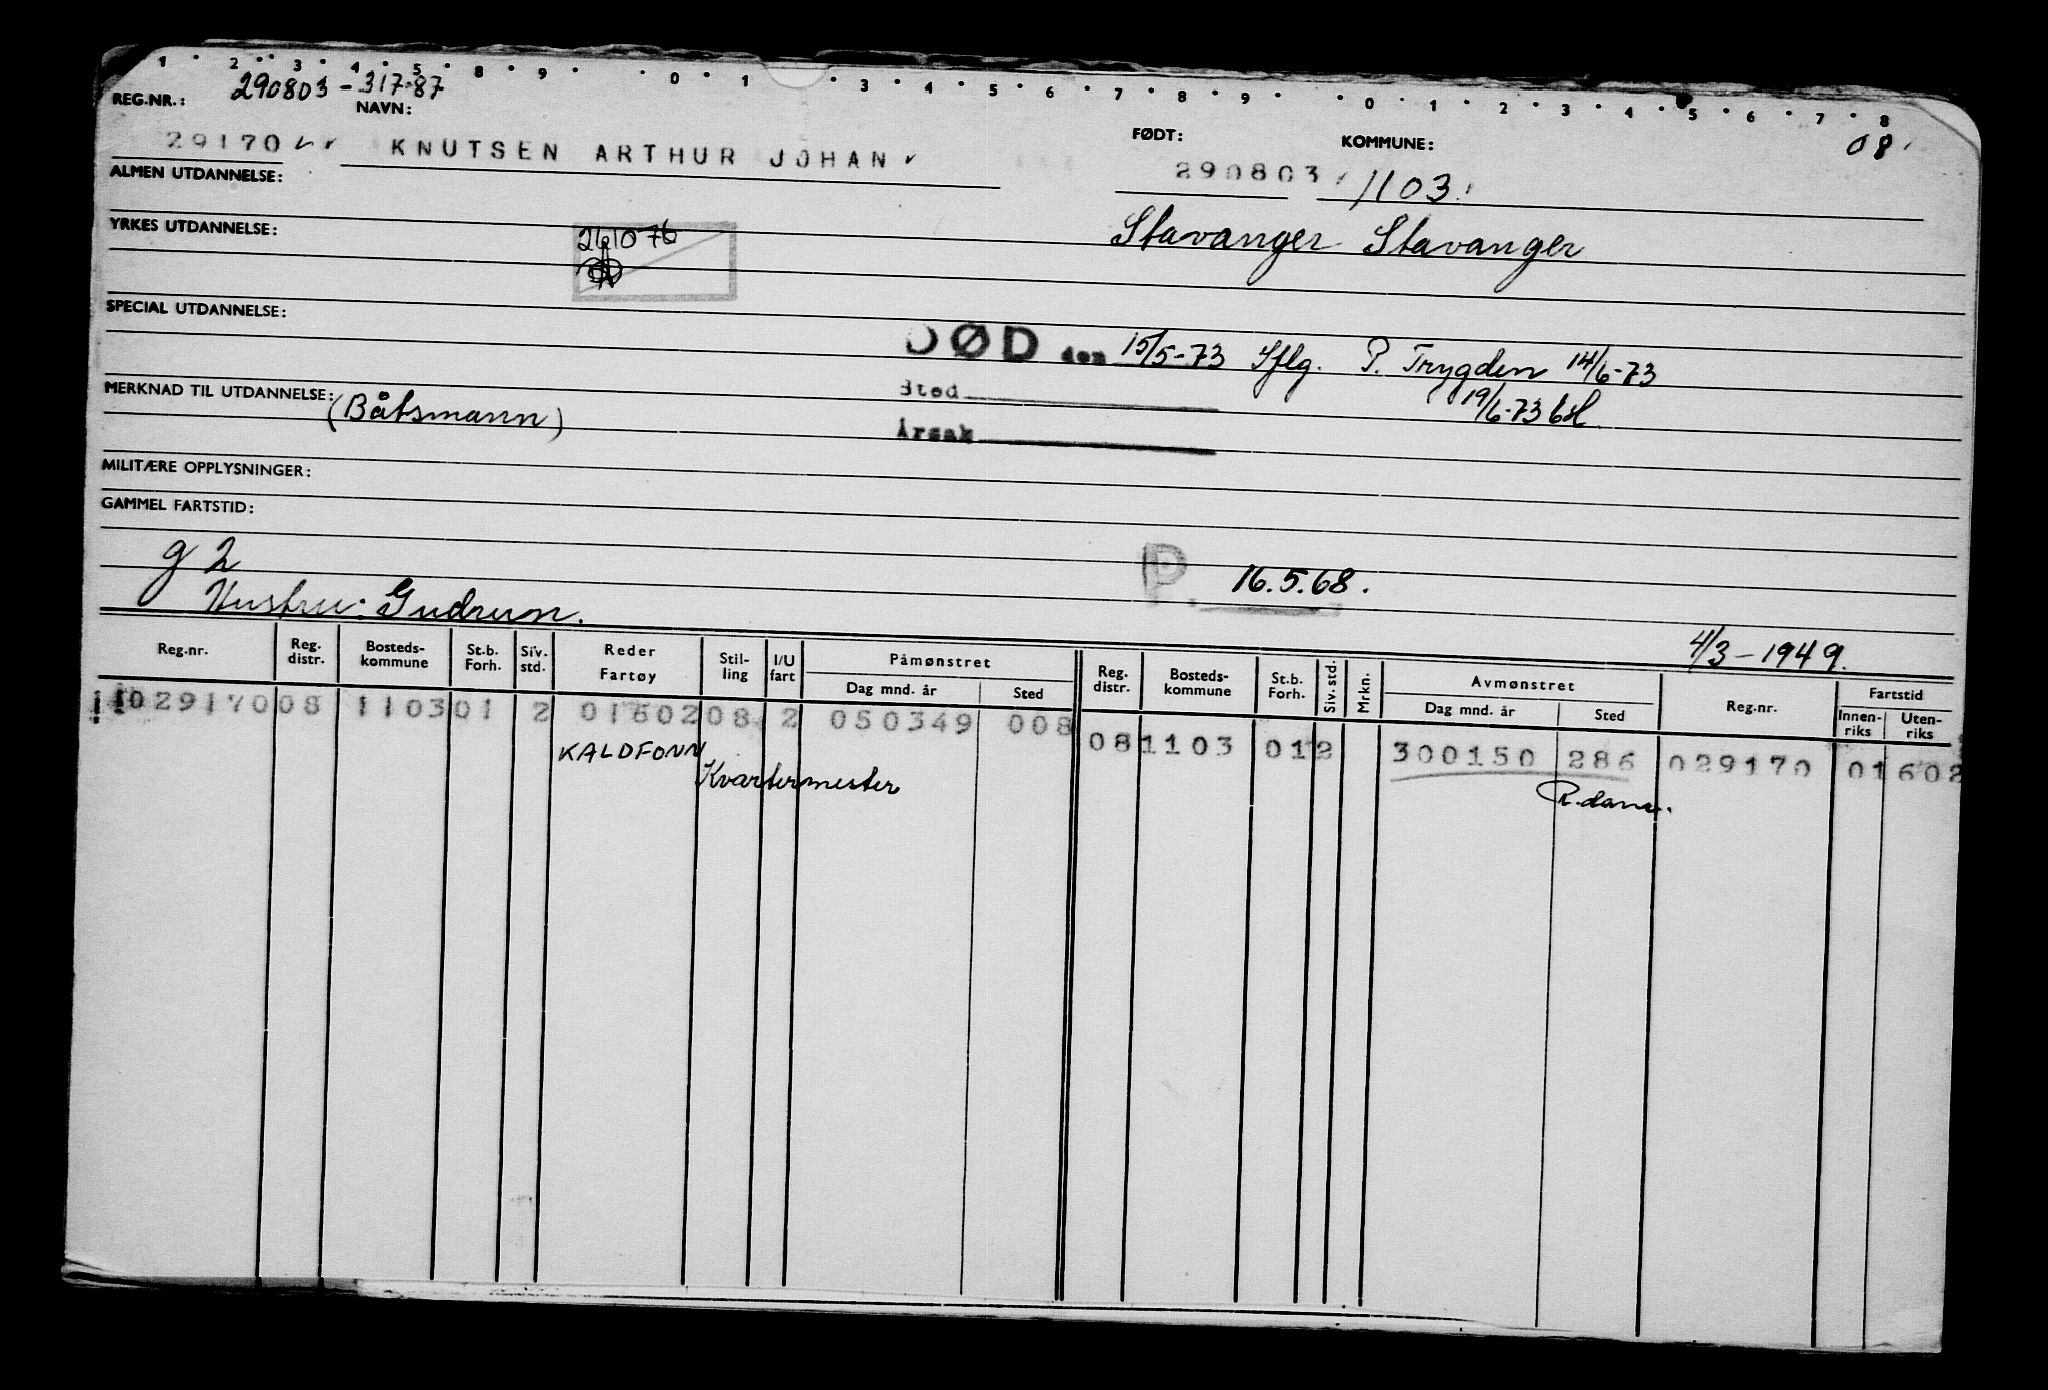 1 2 3 4 5 8 9 0 1 3 4 5 6 7 8 9 0 1 2 3 4 5 6 7 8
290803 - 317.87
REG.NR.: NAVN: FØDT: KOMMUNE: 08
29170 KNUTSEN ARTHUR JOHAN 290803 1103
ALMEN UTDANNELSE:
Stavanger Stavanger
YRKES UTDANNELSE: 261076
SPECIAL UTDANNELSE:
DØD den 15/5-73 Iflg. P. Trygden 14/6-73
Sted 19/6-73
MERKNAD TIL UTDANNELSE: (Båtsmann)
Årsak
MILITÆRE OPPLYSNINGER:
GAMMEL FARTSTID:
g 2 P. 16.5.68.
Hustru: Gudrun.
4/3-1949.
Reg.nr. Reg. distr. Bosteds-kommune St.b. Forh. Siv. std. Reder Fartøy Stil-ling I/U fart Påmønstret Dag mnd. år Sted Reg. distr. Bosteds-kommune St.b. Forh. Siv. std. Mrkn. Avmønstret Dag mnd. år Sted Reg.nr. Fartstid Innen-riks Uten-riks
029170 08 1103 01 2 01602 08 2 050349 008 08 1103 01 2 300150 286 029170 01 602
KALDFONN Kvartermester